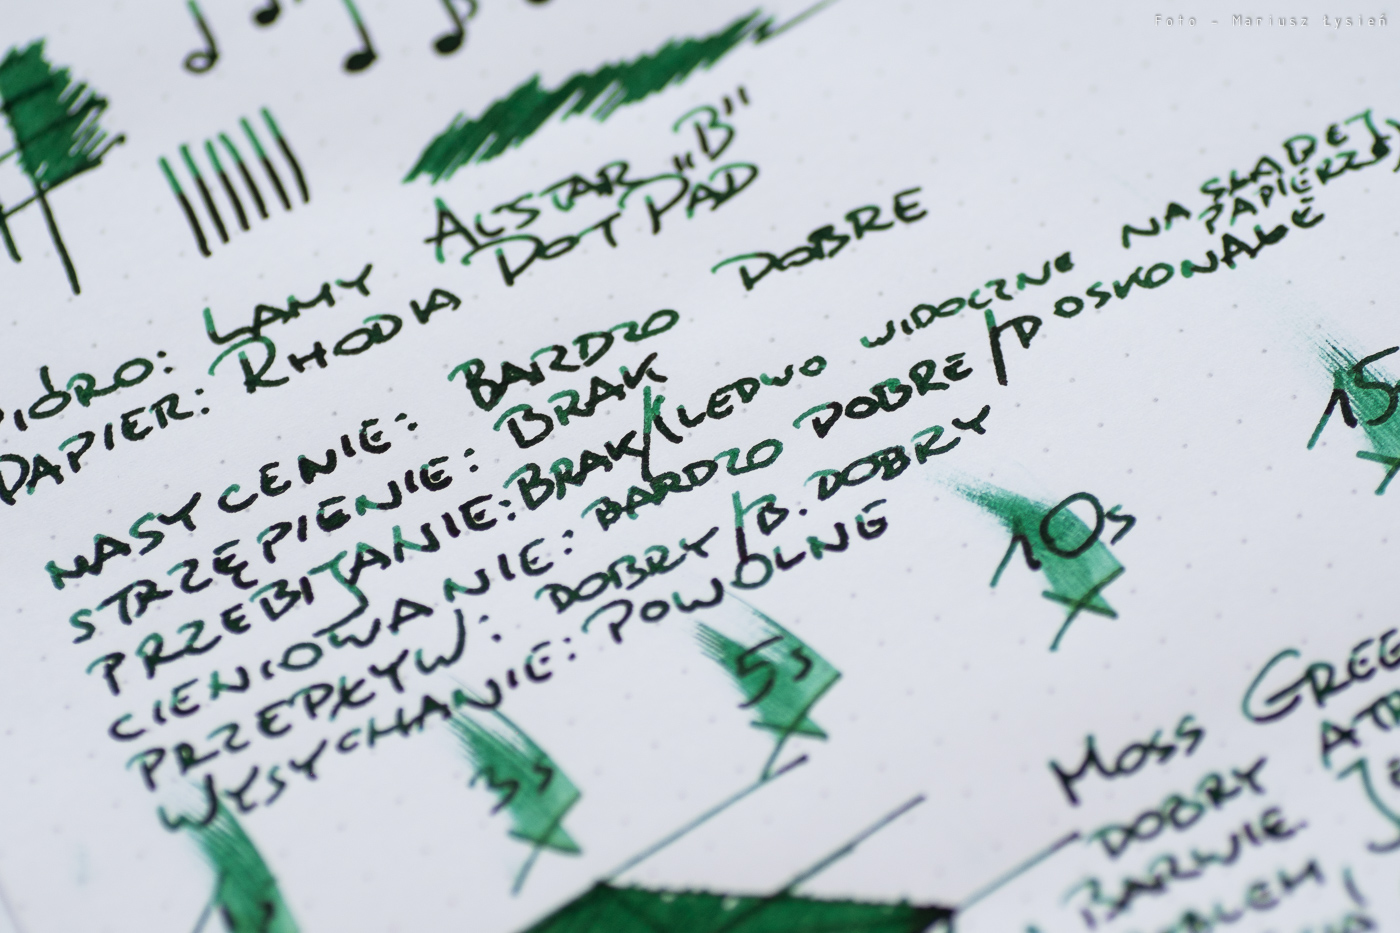 Foto - Mariusz Łysień
PIÓRO: LAMY ALSTAR "B"
PAPIER: RHODIA DOT PAD
NASYCENIE: BARDZO DOBRE
STRZĘPIENIE: BRAK
PRZEBITANIE: BRAK/(LEDWO WIDOCZNE NA SŁABEJ PAPIERZE)
CIENIOWANIE: BARDZO DOBRE/DOSKONAŁE
PRZEPŁYW: DOBRY/B. DOBRY
WYSYCHANIE: POWOLNE
3s
5s
10s
15
MOSS GREE
DOBRY ATR
BARWIE.